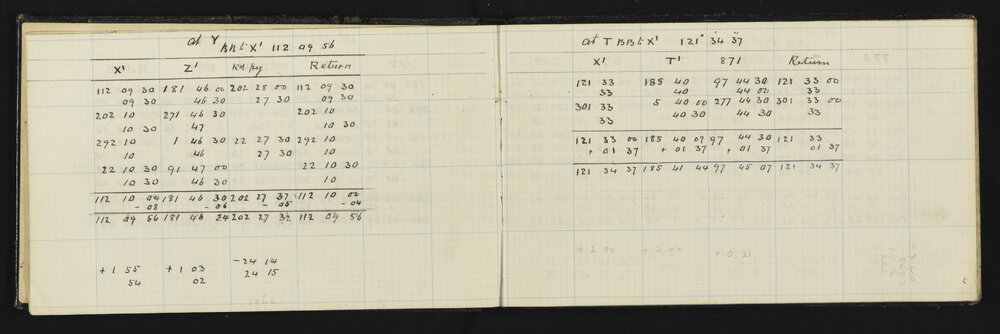 at Y BB to X' 112 09 56
X' Z' RM peg Return
112 09 30 181 46 00 202 28 00 112 09 30
09 30 46 30 27 30 09 30
202 10 271 46 30 202 10
10 30 47 10 30
292 10 1 46 30 22 27 30 292 10
10 46 27 30 10
22 10 30 91 47 00 22 10 30
10 30 46 30 10
112 10 04 181 46 30 202 27 37 112 10 00
- 08 - 06 - 05 - 04
112 09 56 181 46 24 202 27 32 112 09 56
+ 1 55 + 1 03 - 24 14
54 02 24 15
at T BB to X' 121° 34' 37"
X' T' 871 Return
121 33 185 40 97 44 30 121 33 00
33 40 44 00 33
301 33 5 40 00 277 44 30 301 33 00
33 40 30 44 30 33
121 33 00 185 40 07 97 44 30 121 33
+ 01 37 + 01 37 + 01 37 01 37
121 34 37 185 41 44 97 45 07 121 34 37
+ 2 00 + 2 00 + 0 21